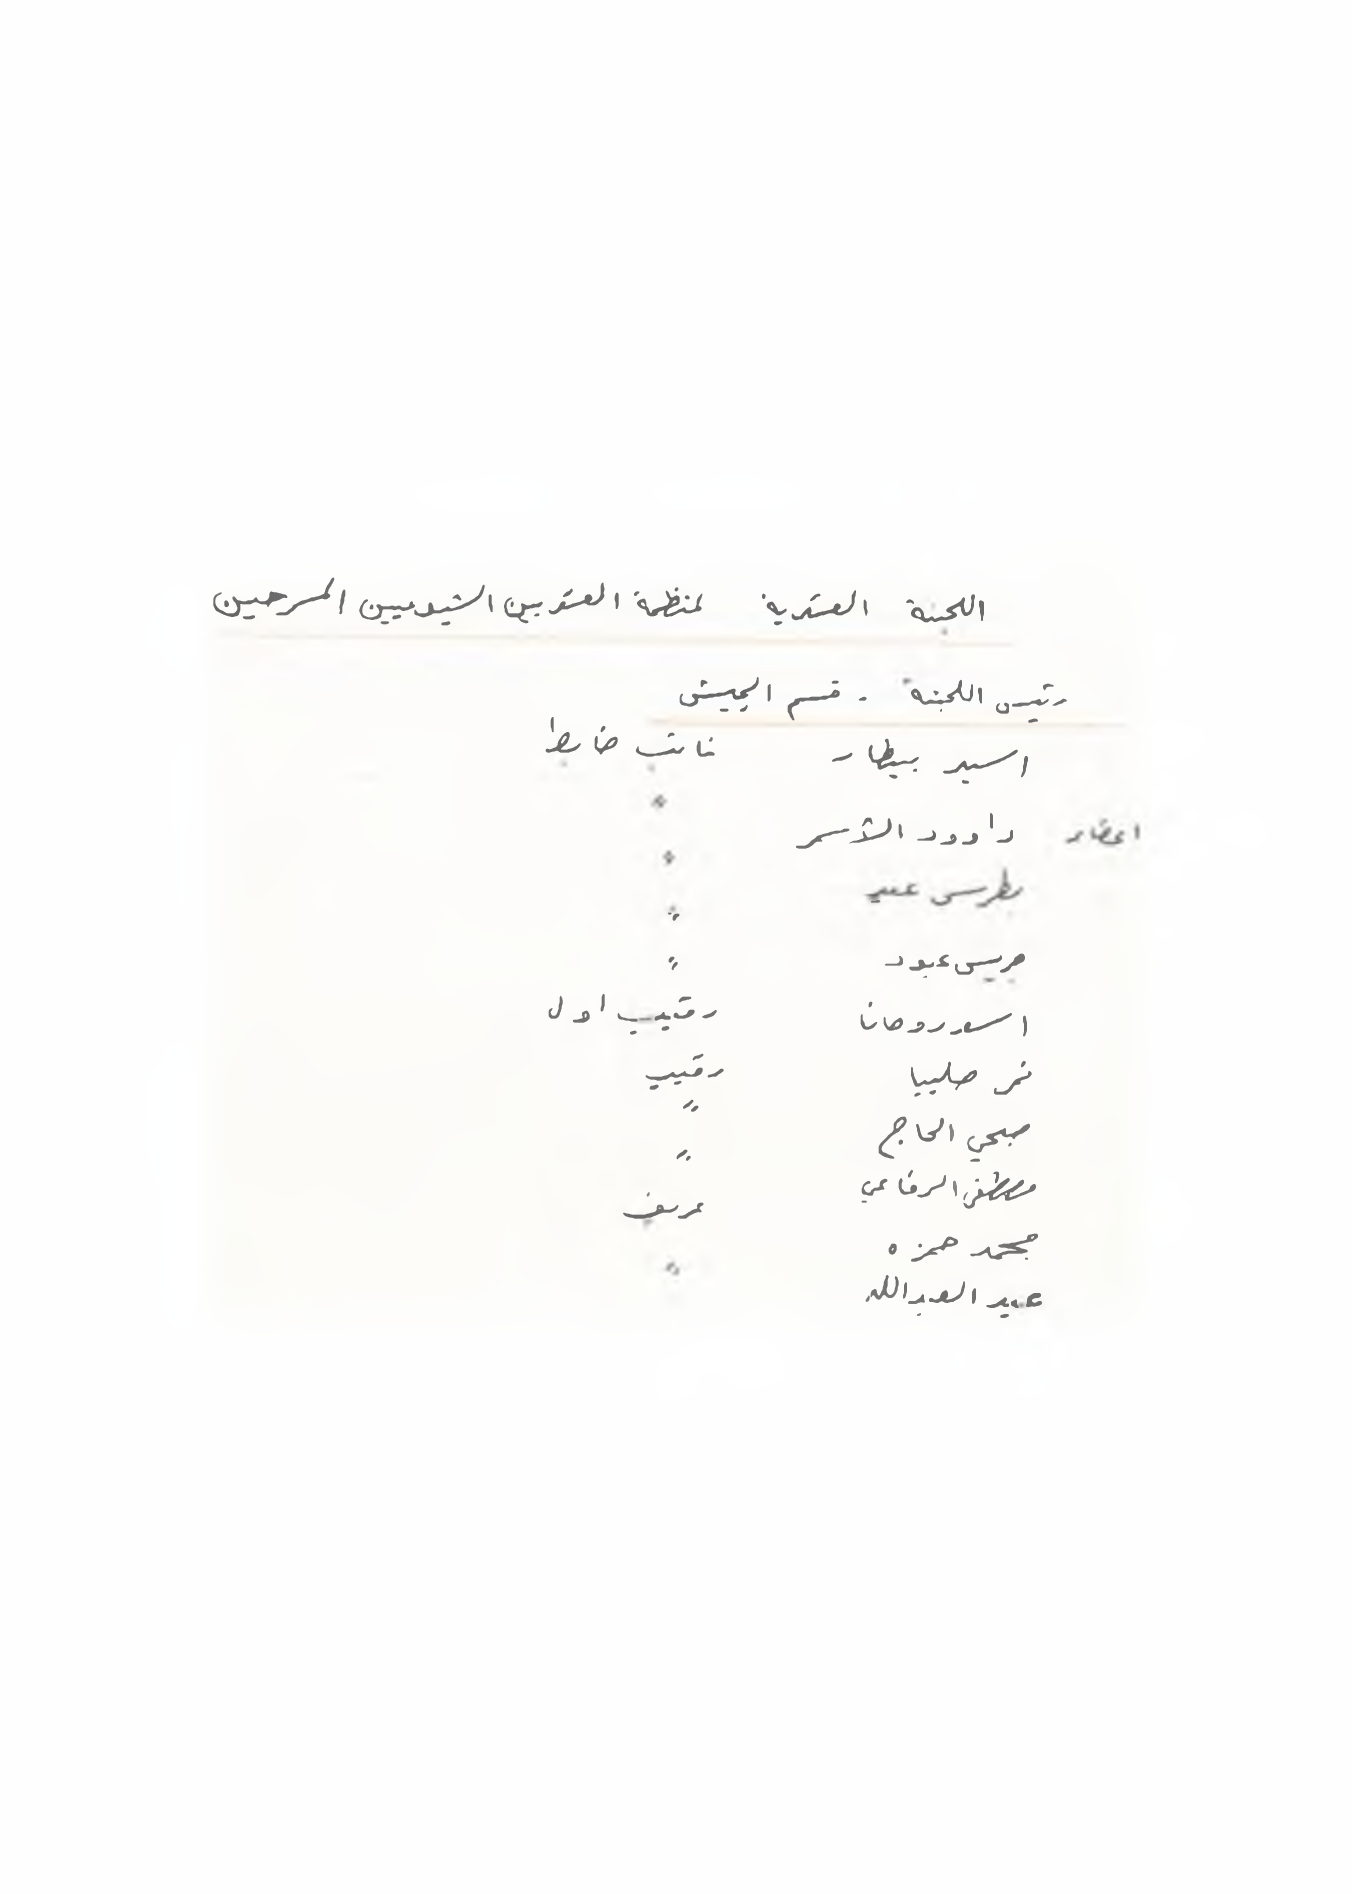 اللجنة العسكرية لمنظمة العسكريين الشيوعيين المسرحين
رئيس اللجنة . قسم الجيش
اسيد بيطار نائب ضابط
اعضاء داوود الأسمر "
بطرس عيد "
جريس عبود "
"
اسعد روحانا رقيب اول
نمر صليبا رقيب
صبحي الحاج "
مصطفى الرفاعي "
محمد حمزه عريف
عبد العبدالله "